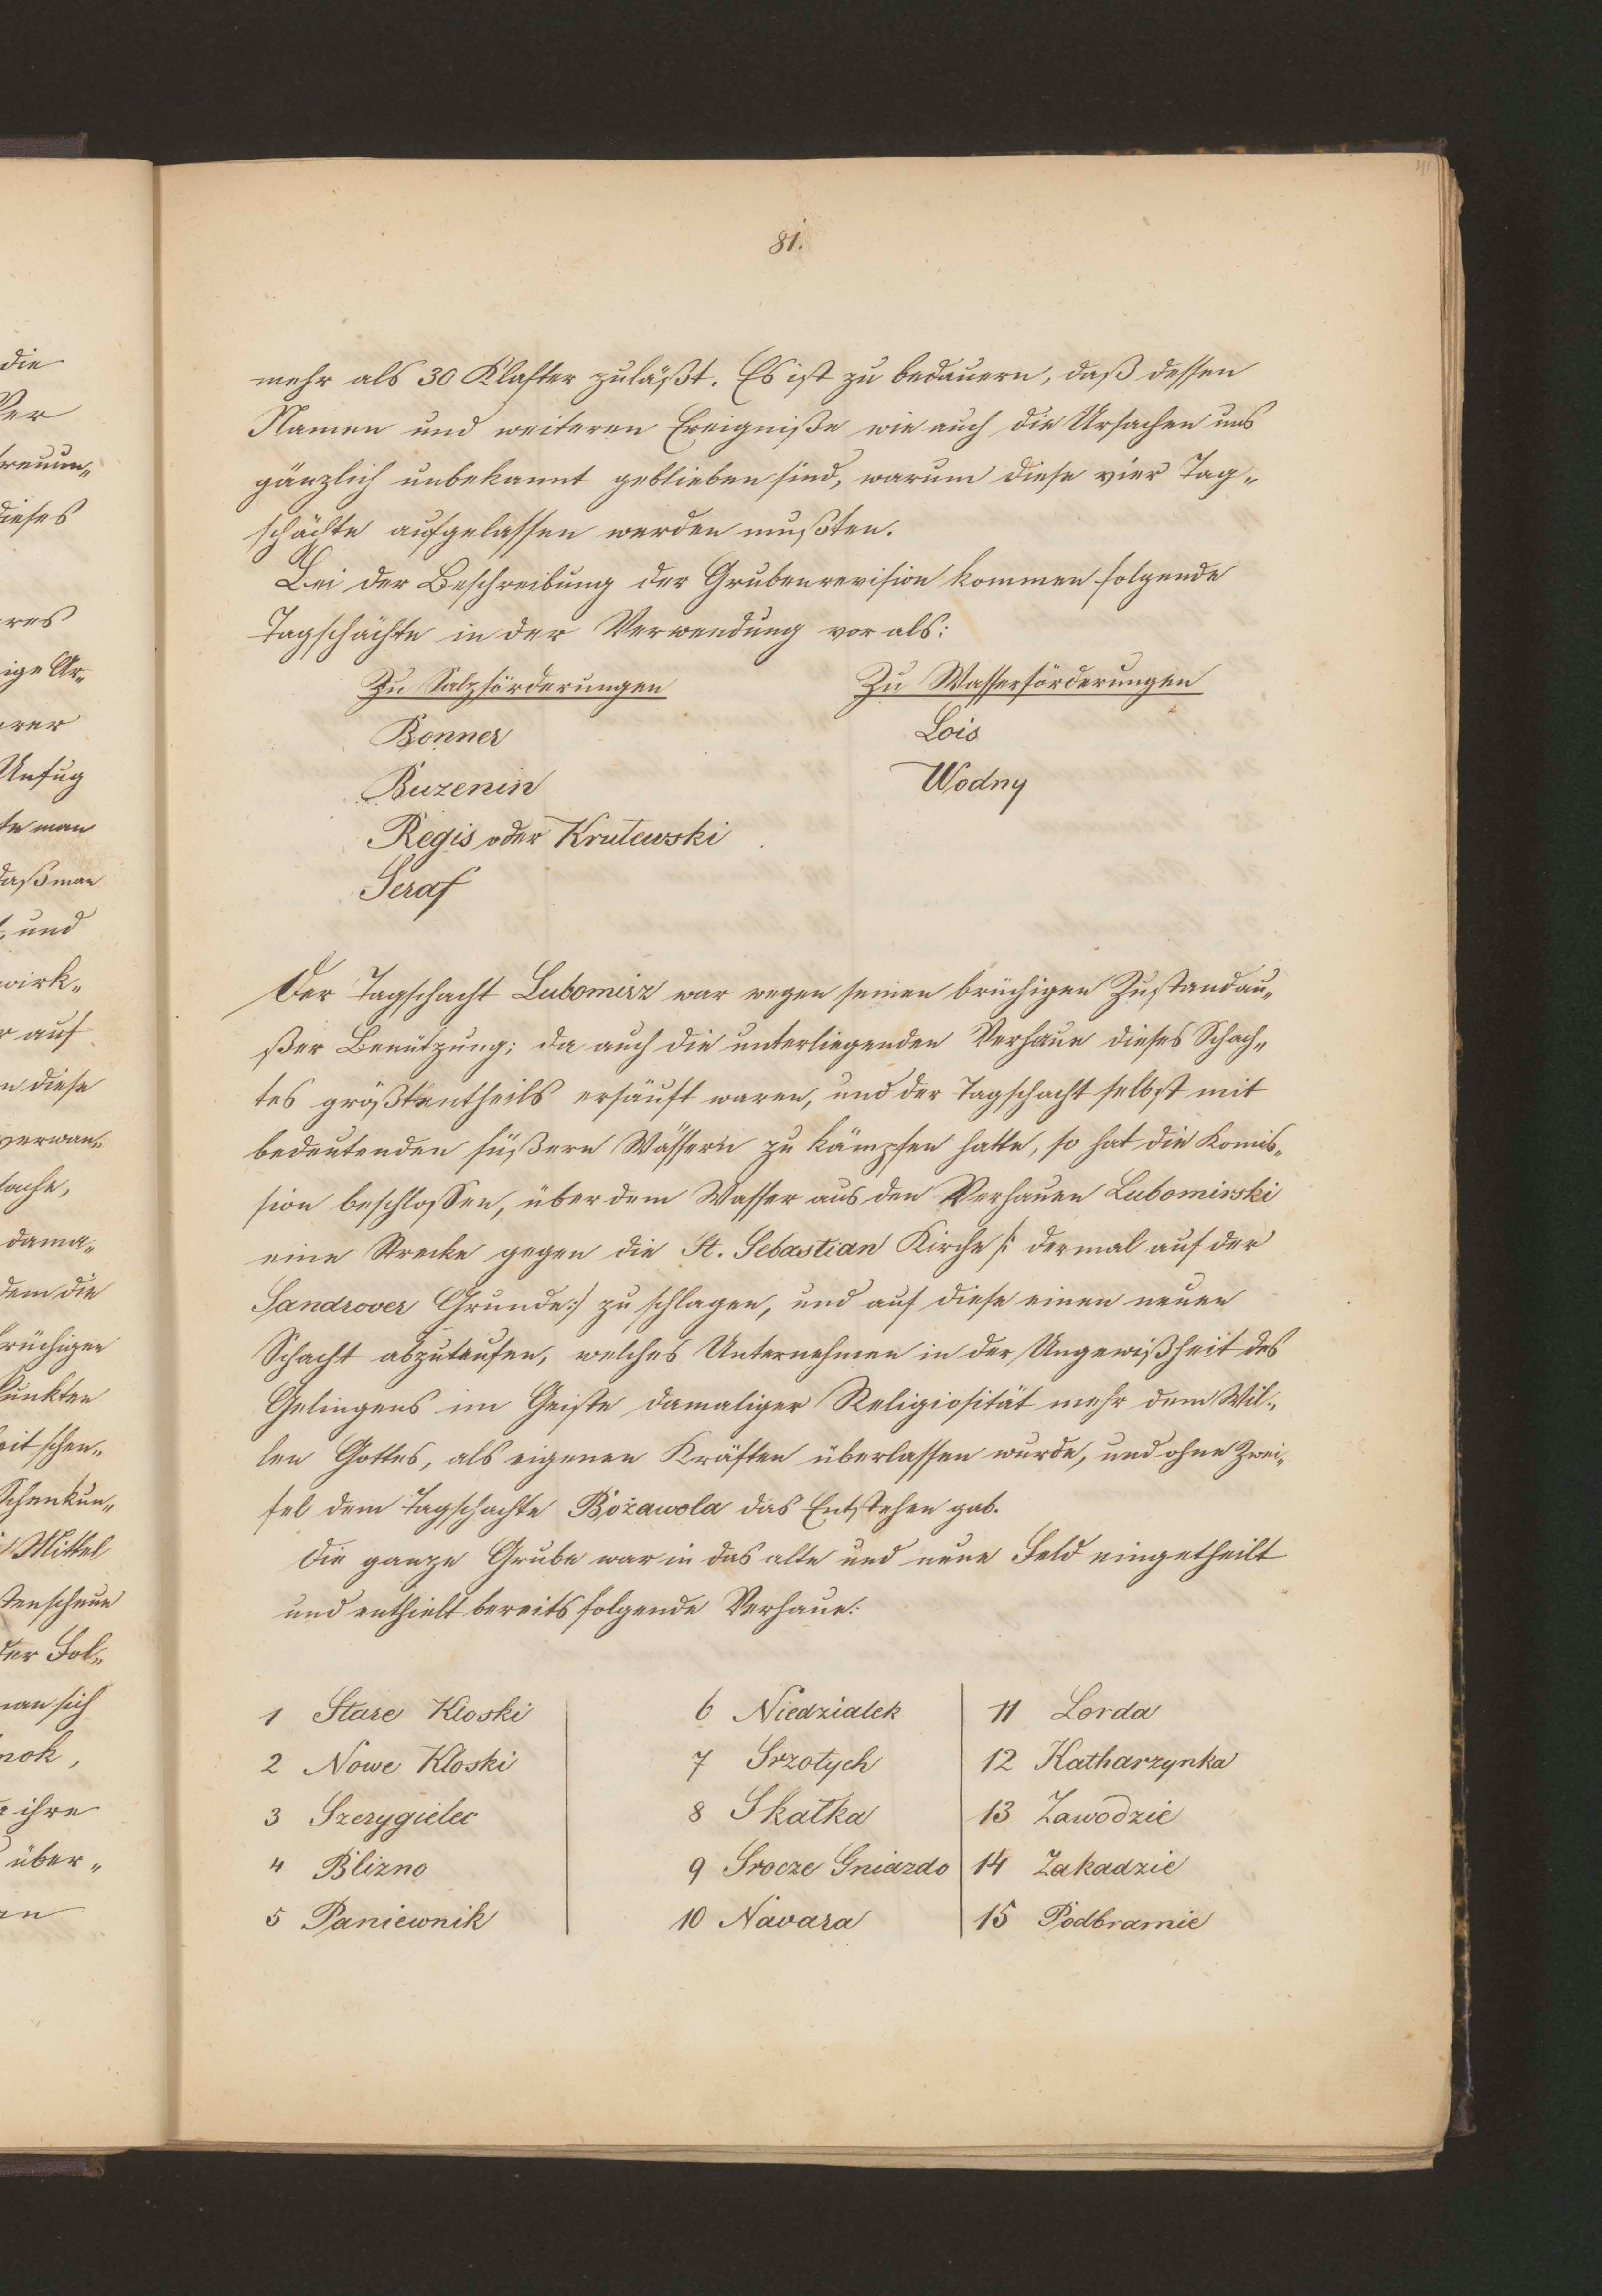 81.
mehr als 30 Klafter zuläßt. Es ist zu bedauern, daß dessen
Namen und weiteren Ereigniße wie auch die Ursachen uns
gänzlich unbekannt geblieben sind, warum diese vier Tag„
schächte aufgelassen werden mußten.
Bei der Beschreibung der Grubenrevision kommen folgende
Tagschächte in der Verwendung vor als:
Zu Salzförderungen Zu Wasserförderungen
Bonner Lois
Buzenin Wodny
Regis oder Krutewski
Seraf
Der Tagschacht Lubomirz war wegen seinen brüchigen Zustand au„
ßer Benützung; da auch die unterliegenden Verhaue dieses Schach„
tes größtentheils ersäuft waren, und der Tagschacht selbst mit
bedeutenden süßern Wässern zu kämpfen hatte, so hat die Komis„
sion beschlossen, über dem Wasser aus den Verhauen Lubomirski
eine Strecke gegen die St. Sebastian Kirche /: dermal auf der
Sandrover Grunde :/ zu schlagen, und auf diese einen neuen
Schacht abzuteufen, welches Unternehmen in der Ungewißheit des
Gelingens im Geiste damaliger Religiosität mehr dem Wil„
len Gottes, als eigenen Kräften überlassen wurde, und ohne Zwei„
fel dem Tagschachte Bożawola das Entstehen gab.
Die ganze Grube war in das alte und neue Feld eingetheilt
und enthielt bereits folgende Verhaue:
1 Stare Kloski 6 Niedzialek 11 Lorda
2 Nowe Kloski 7 Srzotych 12 Katharzynka
3 Szczygielec 8 Skatka 13 Zawodzie
4 Blizno 9 Srocze Gniazdo 14 Zakadzie
5 Paniewnik 10 Navara 15 Podbramie